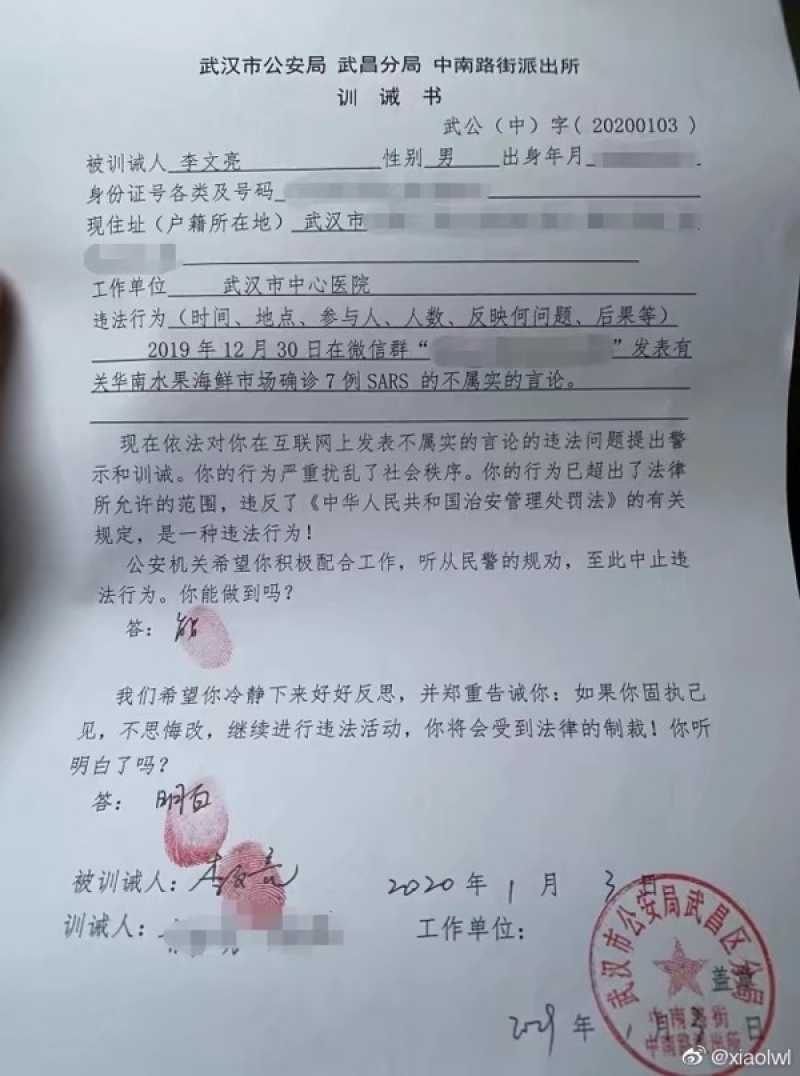 武汉市公安局 武昌分局 中南路街派出所
训 诫 书
武公（中）字( 20200103 )
被训诫人 李文亮 性别 男 出身年月
身份证号各类及号码
现住址（户籍所在地） 武汉市
工作单位 武汉市中心医院
违法行为（时间、地点、参与人、人数、反映何问题、后果等）
2019 年 12 月 30 日在微信群“ ”发表有
关华南水果海鲜市场确诊 7 例 SARS 的不属实的言论。
现在依法对你在互联网上发表不属实的言论的违法问题提出警
示和训诫。你的行为严重扰乱了社会秩序。你的行为已超出了法律
所允许的范围，违反了《中华人民共和国治安管理处罚法》的有关
规定，是一种违法行为！
公安机关希望你积极配合工作，听从民警的规劝，至此中止违
法行为。你能做到吗？
答：能
我们希望你冷静下来好好反思，并郑重告诫你：如果你固执己
见，不思悔改，继续进行违法活动，你将会受到法律的制裁！你听
明白了吗？
答： 明白
被训诫人：李文亮 2020 年 1 月 3 日
训诫人： 工作单位：
武汉市公安局武昌区分局
中南路街
中南路派出所
盖章
年 1 月 3 日
@xiaolwl